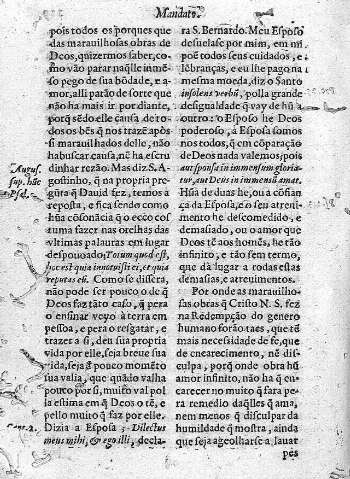 Mandato.
pois todos os porques que
das marauilhosas obras de
Deos, quizermos saber, co-
mo vão parar naq̃lle inmẽ-
so pego de sua bõdade, e a-
mor, alli parão de sorte que
não ha mais ir por diante,
porq̃ sẽdo elle causa de to-
dos os bẽs q̃ nos traz e apòs
si marauilhados delle, não
ha buscar causa, nẽ ha escru
dinhar rezão. Mas diz S. A-
gostinho, q̃ na propria pre-
gũta q̃ Dauid fez, temos a
reposta, e fica sendo como
hũa cõsonãcia q̃ o ecco cos
tuma fazer nas orelhas das
vltimas palauras em lugar
despouoado, Totum quod est,
hoc est quia innotuisti ei, et quia
reputas eũ. Como se dissera,
não pode ser pouco o de q̃
Deos faz tãto caso, q̃ pera
o ensinar veyo à terra em
pessoa, e pera o resgatar, e
trazer a si, deu sua propria
vida por elle, seja breue sua
vida, seja de pouco momẽto
sua valia, que quãdo valha
pouco por si, muito val pol
la estima em q̃ Deos o tẽ, e
pello muito q̃ faz por elle.
Dizia a Esposa, Dilectus
meus mihi, & ego illi, decla-
Augus.
sup. hũc
Psal.
Cant. 2.
ra S. Bernardo. Meu Esposo
desuelase por mim, em mi
poẽ todos seus cuidados, e
lẽbranças, e eu lhe pago na
mesma moeda, diz o Santo
insolens verbũ, polla grande
desigualdade q̃ vay de hũ a
outro: o Esposo he Deos
poderoso, a Esposa somos
nos todos, q̃ em cõparação
de Deos nada valemos; pois
aut sponsa in immensum gloria-
tur, aut Deus in immensũ amat.
Hũa de duas he, ou a cõfian
ça da Esposa, e o seu atreui-
mento he descomedido, e
demasiado, ou o amor que
Deos tẽ aos homẽs, he tão
infinito, e tão sem termo,
que dà lugar a todas estas
demasias, e atreuimentos.
Por onde as marauilho-
sas obras q̃ Cristo N. S. fez
na Redempção do genero
humano forão taes, que tẽ
mais necessidade de fe, que
de encarecimento, nẽ dis-
culpa, porq̃ onde obra hũ
amor infinito, não ha q̃ en-
carecer no muito q̃ fara pe-
ra remedio daq̃lles q̃ ama,
nem menos q̃ disculpar da
humildade q̃ mostra, ainda
que seja ageolharse a lauar
pès